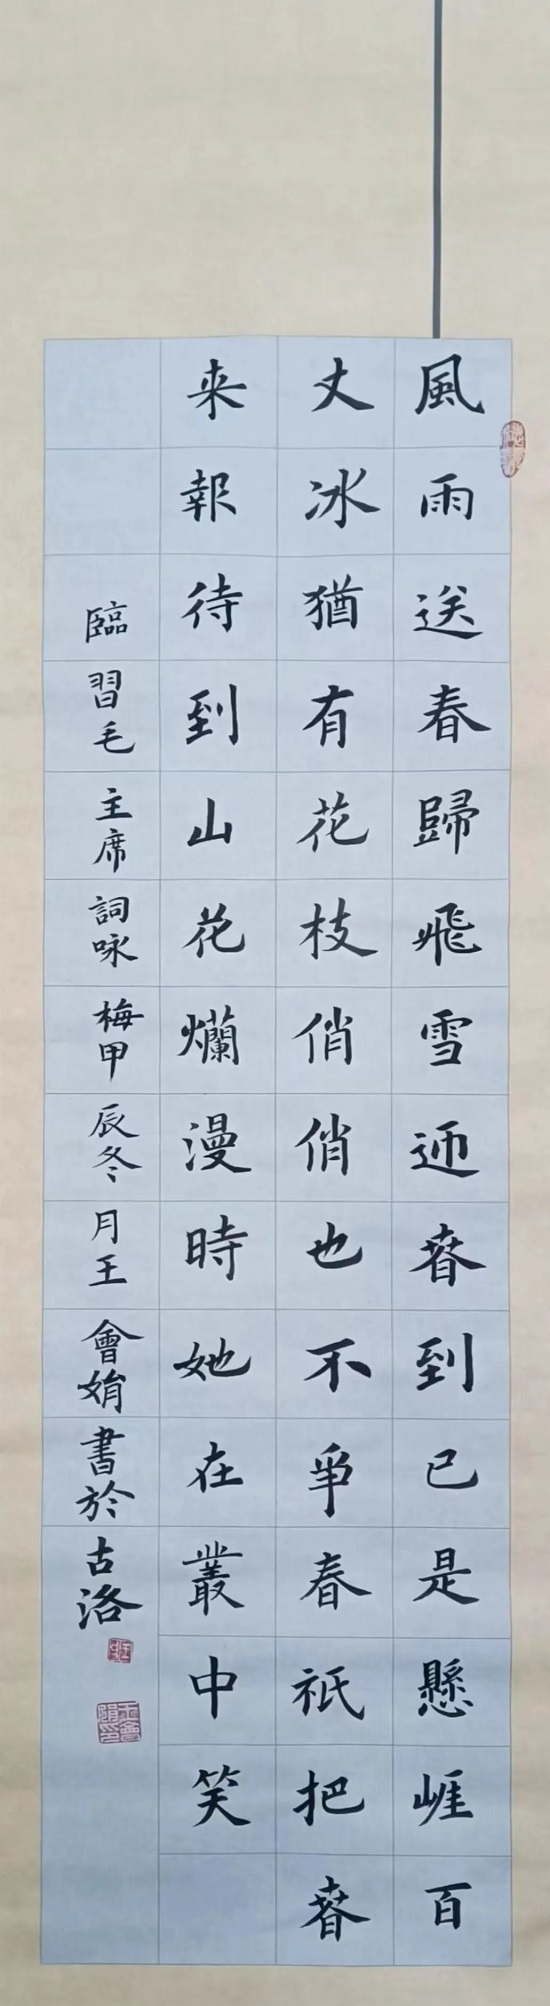 風雨送春歸飛雪迎春到已是懸崖百
丈冰猶有花枝俏俏也不爭春衹把春
来報待到山花爛漫時她在叢中笑
臨習毛主席詞咏梅甲辰冬月王會娟書於古洛